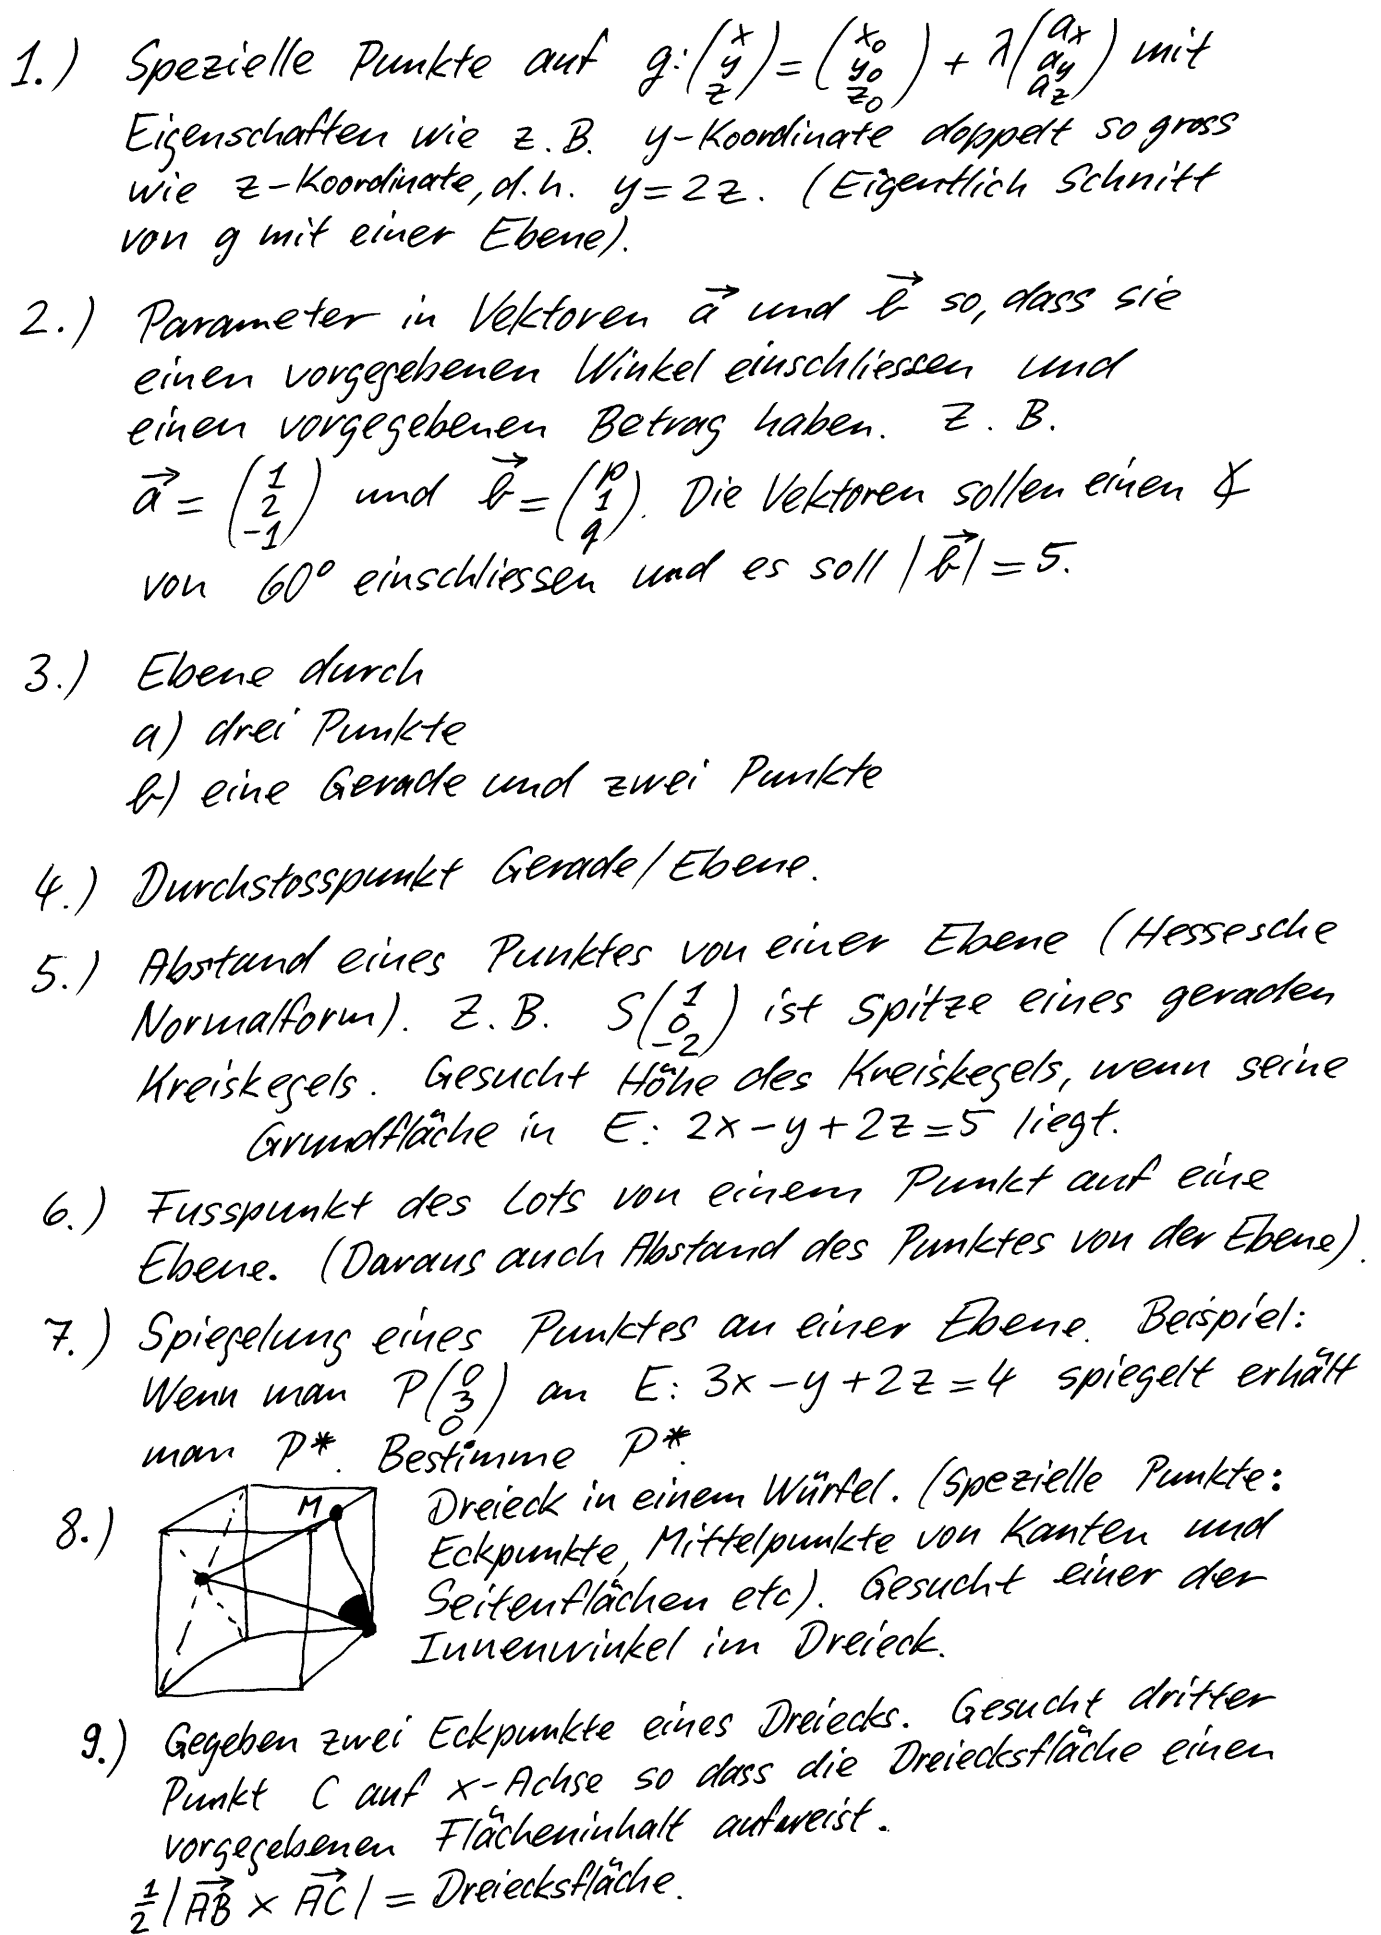 1.) Spezielle Punkte auf g: (x y z) = (x₀ y₀ z₀) + λ(aₓ a_y a_z) mit
Eigenschaften wie z.B. y-Koordinate doppelt so gross
wie z-Koordinate, d.h. y=2z. (Eigentlich Schnitt
von g mit einer Ebene).
2.) Parameter in Vektoren a⃗ und b⃗ so, dass sie
einen vorgegebenen Winkel einschliessen und
einen vorgegebenen Betrag haben. Z.B.
a⃗ = (1 2 -1) und b⃗ = (p 1 q). Die Vektoren sollen einen ∢
von 60° einschliessen und es soll |b⃗| = 5.
3.) Ebene durch
a) drei Punkte
b) eine Gerade und zwei Punkte
4.) Durchstosspunkt Gerade/Ebene.
5.) Abstand eines Punktes von einer Ebene (Hessesche
Normalform). Z.B. S(1 0 -2) ist Spitze eines geraden
Kreiskegels. Gesucht Höhe des Kreiskegels, wenn seine
Grundfläche in E: 2x-y+2z=5 liegt.
6.) Fusspunkt des Lots von einem Punkt auf eine
Ebene. (Daraus auch Abstand des Punktes von der Ebene).
7.) Spiegelung eines Punktes an einer Ebene. Beispiel:
Wenn man P(0 3 0) an E: 3x-y+2z=4 spiegelt erhält
man P*. Bestimme P*.
8.) M Dreieck in einem Würfel. (Spezielle Punkte:
Eckpunkte, Mittelpunkte von Kanten und
Seitenflächen etc). Gesucht einer der
Innenwinkel im Dreieck.
9.) Gegeben zwei Eckpunkte eines Dreiecks. Gesucht dritter
Punkt C auf x-Achse so dass die Dreiecksfläche einen
vorgegebenen Flächeninhalt aufweist.
½|AB⃗ × AC⃗| = Dreiecksfläche.